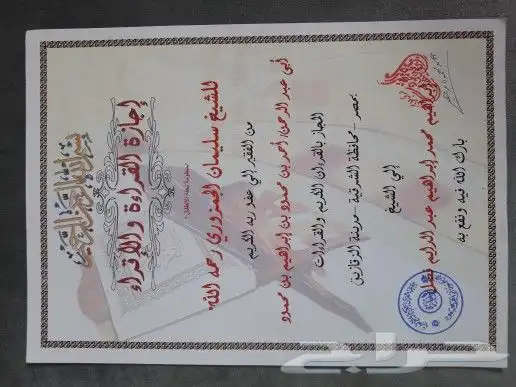 بسم الله الرحمن الرحيم
إجازة القراءة والإقراء
للشيخ سليمان الجمزوري رحمه الله
من الفقير إلى عفو ربه الكريم
أبي عبد الرحمن/ أحمد بن محمود بن إبراهيم بن محمود
المجاز بالقرآن الكريم والقراءات
بمصر - محافظة الشرقية - مدينة الزقازيق
إلى الشيخ
إبراهيم محمد إبراهيم عبد الدايم
بارك الله فيه ونفع به
حراج